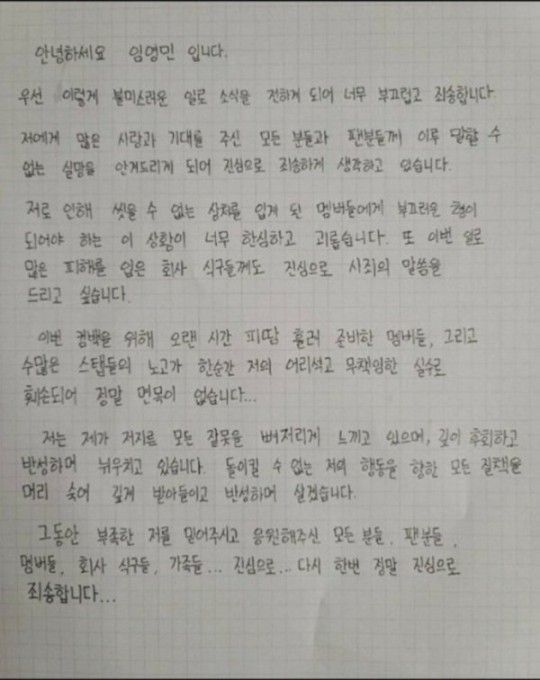 안녕하세요 임영민 입니다.
우선 이렇게 불미스러운 일로 소식을 전하게 되어 너무 부끄럽고 죄송합니다.
저에게 많은 사랑과 기대를 주신 모든 분들과 팬분들께 이루 말할 수
없는 실망을 안겨드리게 되어 진심으로 죄송하게 생각하고 있습니다.
저로 인해 씻을 수 없는 상처를 입게 된 멤버들에게 부끄러운 형이
되어야 하는 이 상황이 너무 한심하고 괴롭습니다. 또 이번 일로
많은 피해를 입은 회사 식구들께도 진심으로 사죄의 말씀을
드리고 싶습니다.
이번 컴백을 위해 오랜 시간 피땀 흘려 준비한 멤버들, 그리고
수많은 스탭들의 노고가 한순간 저의 어리석고 무책임한 실수로
훼손되어 정말 면목이 없습니다...
저는 제가 저지른 모든 잘못을 뼈저리게 느끼고 있으며, 깊이 후회하고
반성하며 뉘우치고 있습니다. 돌이킬 수 없는 저의 행동을 향한 모든 질책을
머리 숙여 깊게 받아들이고 반성하며 살겠습니다.
그동안 부족한 저를 믿어주시고 응원해주신 모든 분들, 팬분들,
멤버들, 회사 식구들, 가족들... 진심으로... 다시 한번 정말 진심으로
죄송합니다...